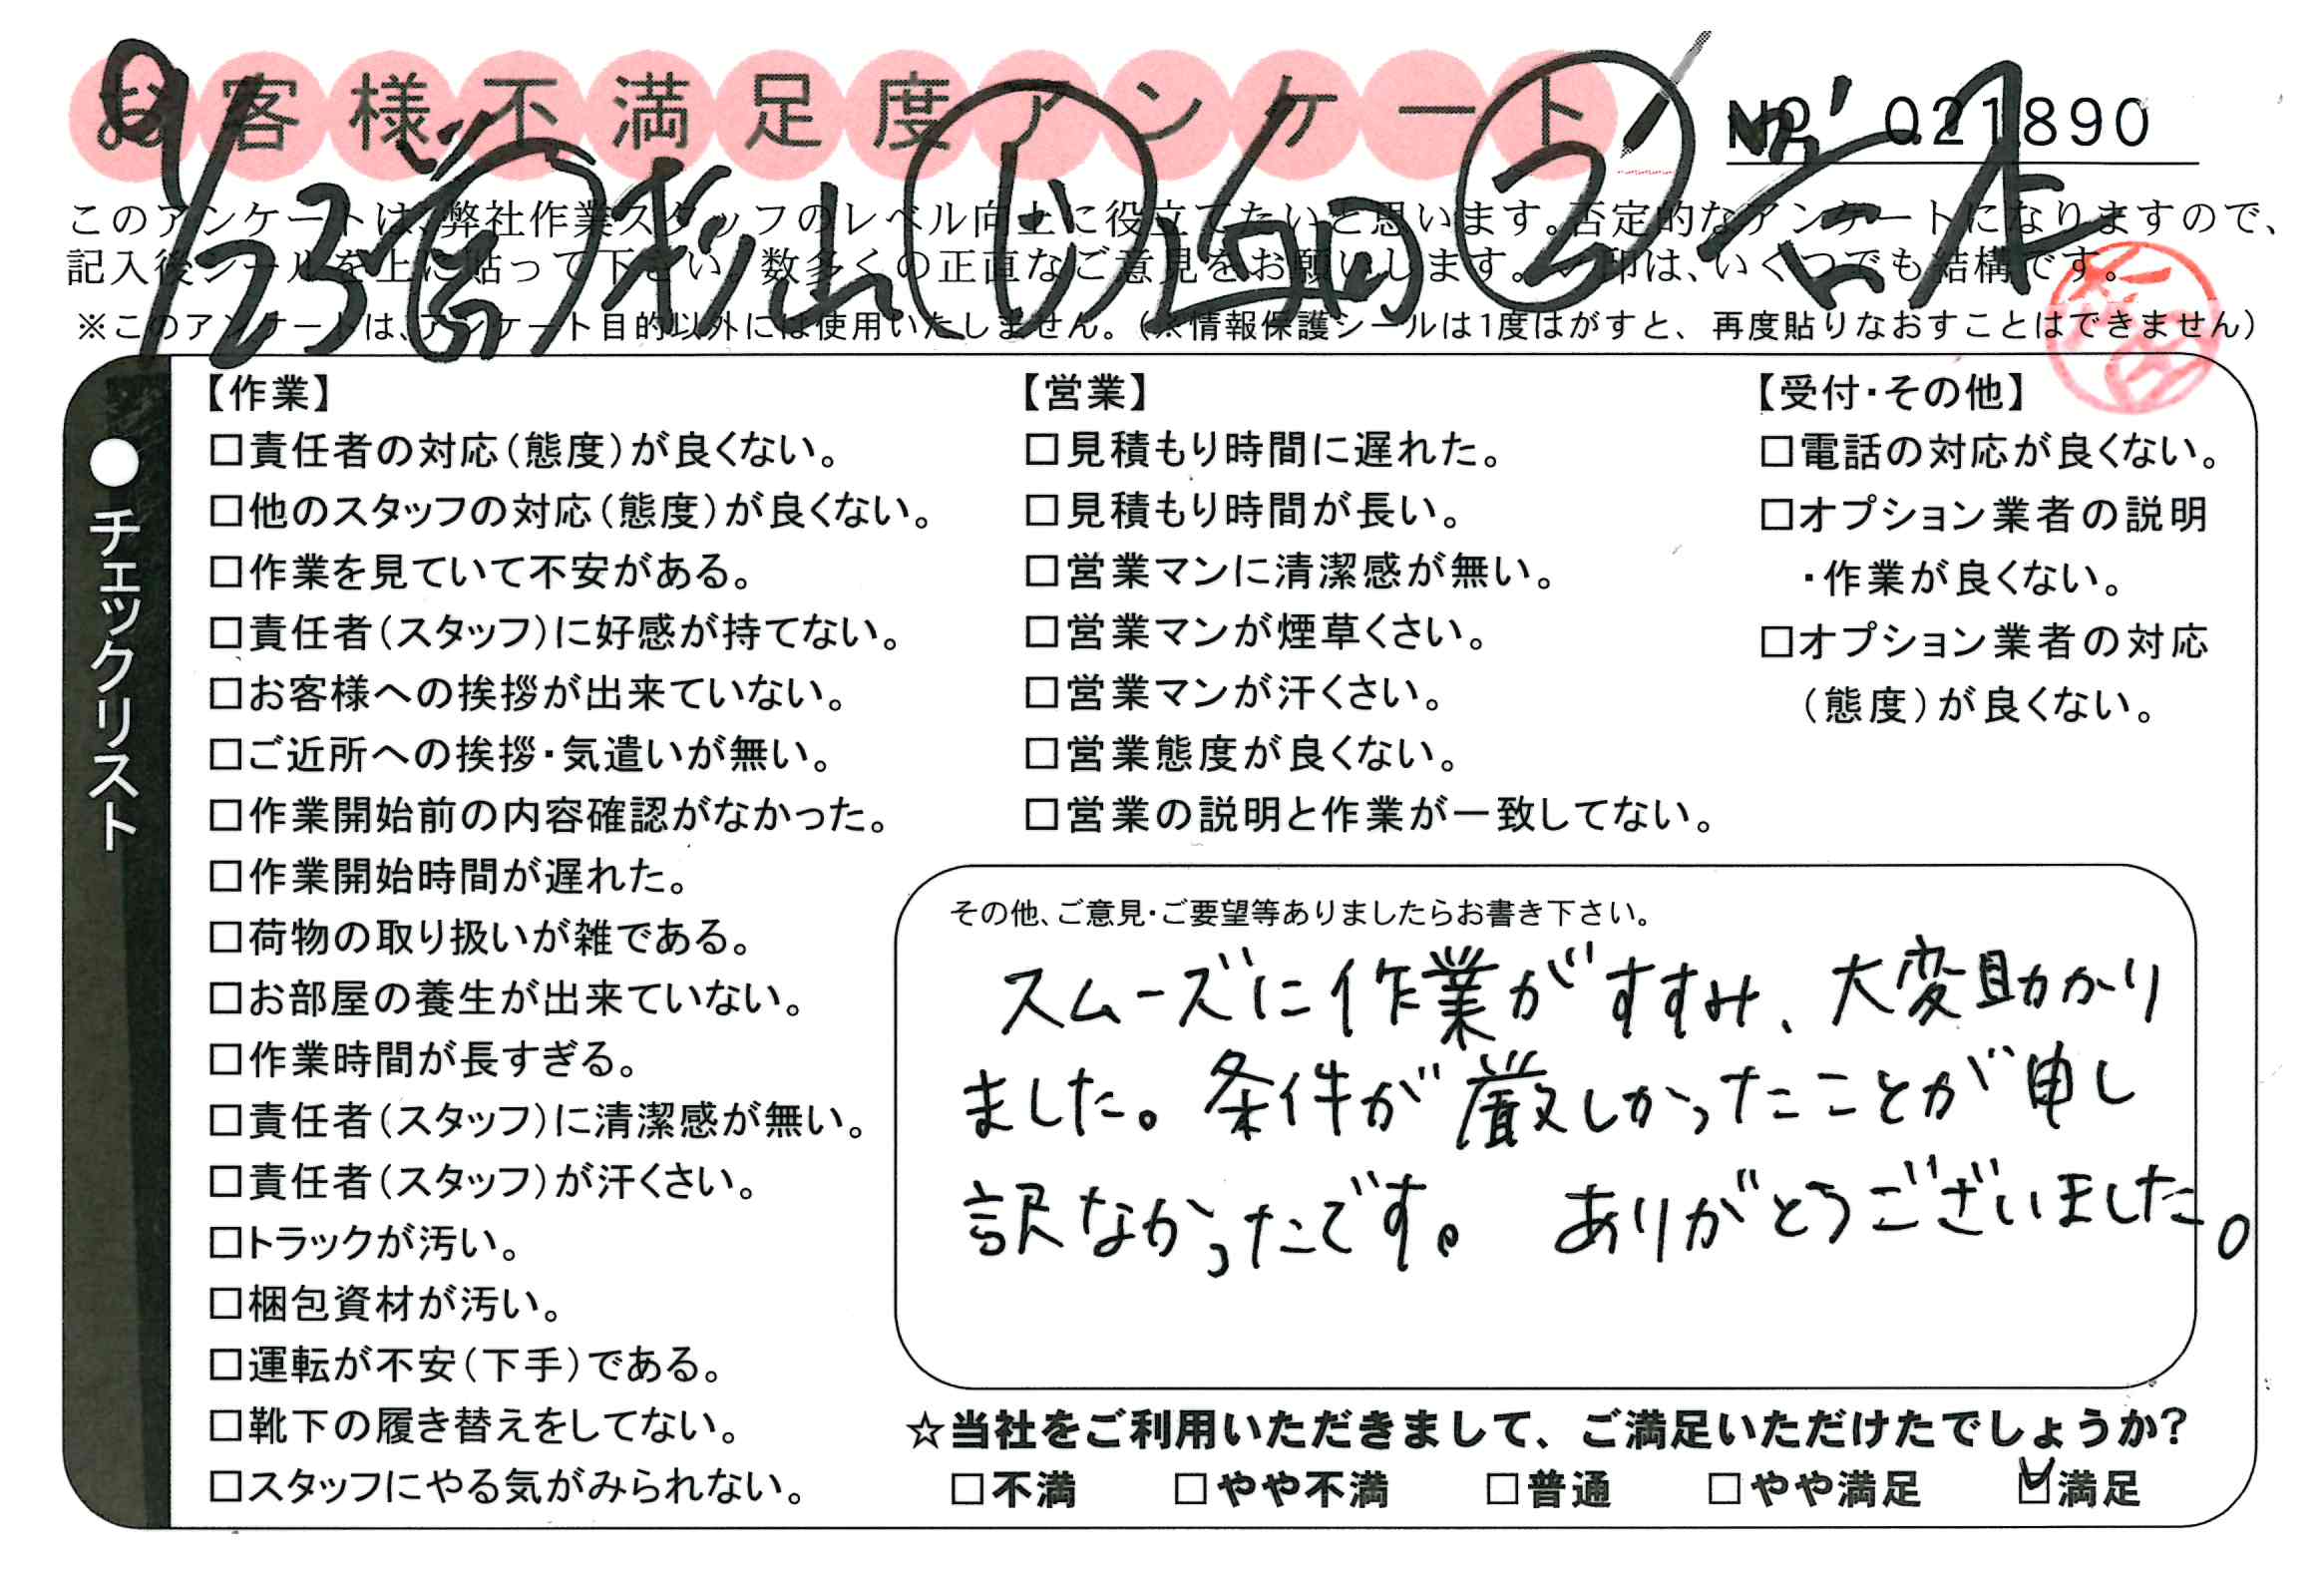 お客様不満足度アンケート
№ 021890
9/23 営 杉山 ① 山口 ②
このアンケートは、弊社作業スタッフのレベル向上に役立てたいと思います。否定的なアンケートになりますので、
記入後シールを上に貼って下さい。数多くの正直なご意見をお願いします。✓印は、いくつでも結構です。
※このアンケートは、アンケート目的以外には使用いたしません。(※情報保護シールは1度はがすと、再度貼りなおすことはできません)
●チェックリスト
【作業】
□責任者の対応(態度)が良くない。
□他のスタッフの対応(態度)が良くない。
□作業を見ていて不安がある。
□責任者(スタッフ)に好感が持てない。
□お客様への挨拶が出来ていない。
□ご近所への挨拶・気遣いが無い。
□作業開始前の内容確認がなかった。
□作業開始時間が遅れた。
□荷物の取り扱いが雑である。
□お部屋の養生が出来ていない。
□作業時間が長すぎる。
□責任者(スタッフ)に清潔感が無い。
□責任者(スタッフ)が汗くさい。
□トラックが汚い。
□梱包資材が汚い。
□運転が不安(下手)である。
□靴下の履き替えをしてない。
□スタッフにやる気がみられない。
【営業】
□見積もり時間に遅れた。
□見積もり時間が長い。
□営業マンに清潔感が無い。
□営業マンが煙草くさい。
□営業マンが汗くさい。
□営業態度が良くない。
□営業の説明と作業が一致してない。
【受付・その他】
□電話の対応が良くない。
□オプション業者の説明
・作業が良くない。
□オプション業者の対応
(態度)が良くない。
その他、ご意見・ご要望等ありましたらお書き下さい。
スムーズに作業がすすみ、大変助かり
ました。条件が厳しかったことが申し
訳なかったです。ありがとうございました。
☆当社をご利用いただきまして、ご満足いただけたでしょうか?
□不満 □やや不満 □普通 □やや満足 ☑満足